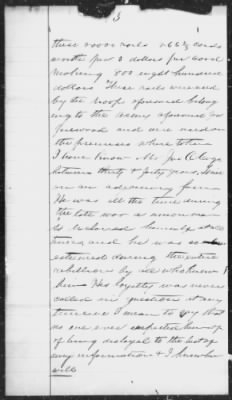 3
these 10000 rails 266⅔ cords
worth just 3 dollars per cord
making 800 eight hundred
dollars These rails were used
by the troops aforesaid belong
ing to the army aforesaid as
firewood and were used on
the premises where taken
I have known Mr Jno A
between thirty & forty years, I have
in an adjoining farm
He was all the time during
the late war a union man
& declared himself at all
times and he was so
esteemed during the entire
rebellion by all who knew
him His loyalty was never
called in question at any
time and I mean to say that
no one ever suspected him
of being disloyal to the best of
my information & I knew him
well